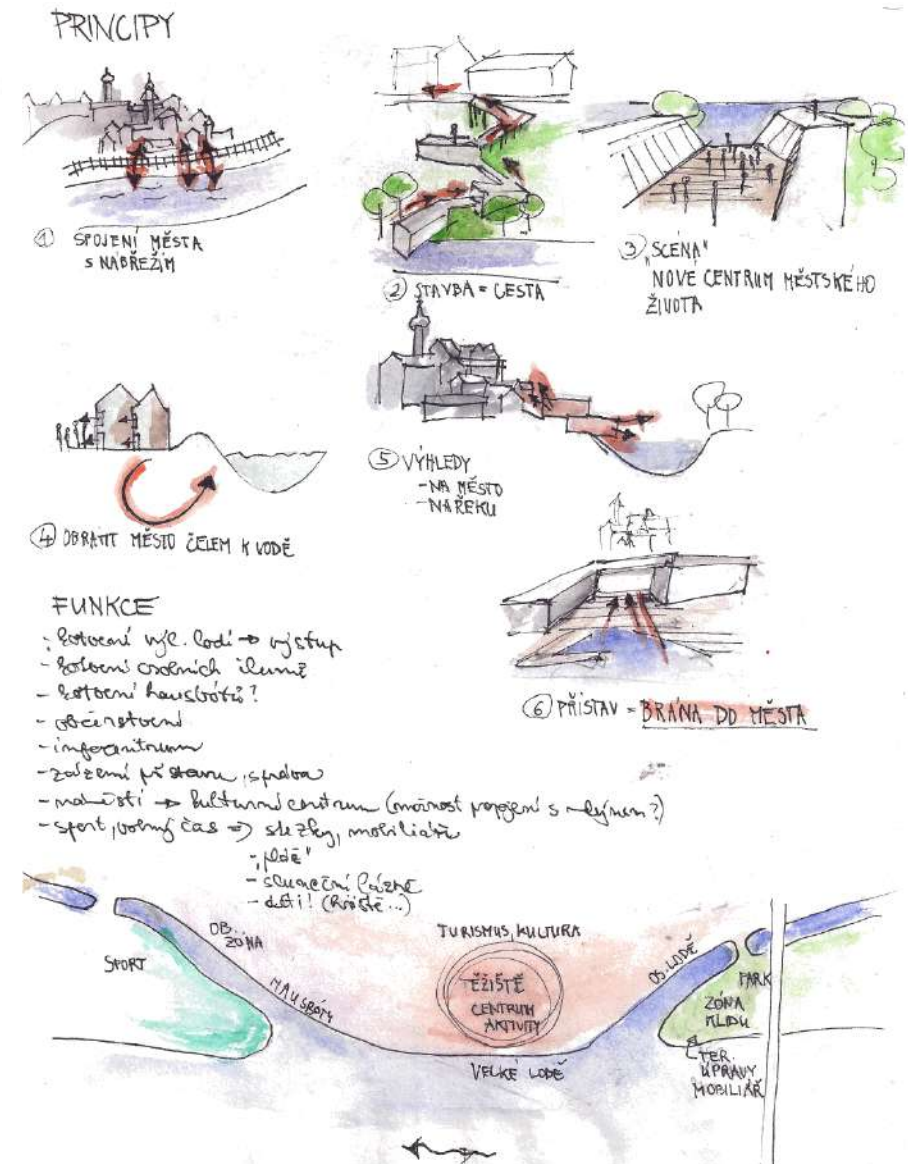 PRINCIPY
① SPOJENÍ MĚSTA
S NÁBŘEŽÍM
② STAVBA = CESTA
③ „SCÉNA“
NOVÉ CENTRUM MĚSTSKÉHO
ŽIVOTA
④ OBRÁTIT MĚSTO ČELEM K VODĚ
⑤ VÝHLEDY
- NA MĚSTO
- NA ŘEKU
⑥ PŘÍSTAV = BRÁNA DO MĚSTA
FUNKCE
- kotvení výl. lodí → výstup
- kotvení osobních
- kotvení hausbótů?
- občerstvení
- infocentrum
- zázemí přístavu, správa
- náměstí → kulturní centrum (možnost propojení s mlýnem?)
- sport, volný čas → stezky, mobiliář
- „pláž“
- sluneční lázně
- děti! (hřiště...)
SPORT
OB..
ZÓNA
HAUSBÓTY
TURISMUS, KULTURA
TĚŽIŠTĚ
CENTRUM
AKTIVITY
VELKÉ LODĚ
OS. LODĚ
PARK
ZÓNA
KLIDU
TER.
ÚPRAVY
MOBILIÁŘ